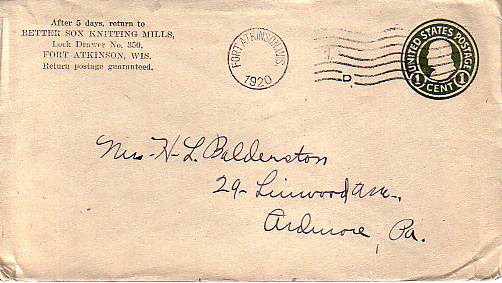 After 5 days, return to
BETTER SOX KNITTING MILLS,
Lock Drawer No. 350,
FORT ATKINSON, WIS.
Return postage guaranteed.
FORT ATKINSON, WIS.
1920
D
UNITED STATES POSTAGE
1 CENT 1
Mrs. H. L. Balderston
29 - Linwood Ave.,
Ardmore, Pa.